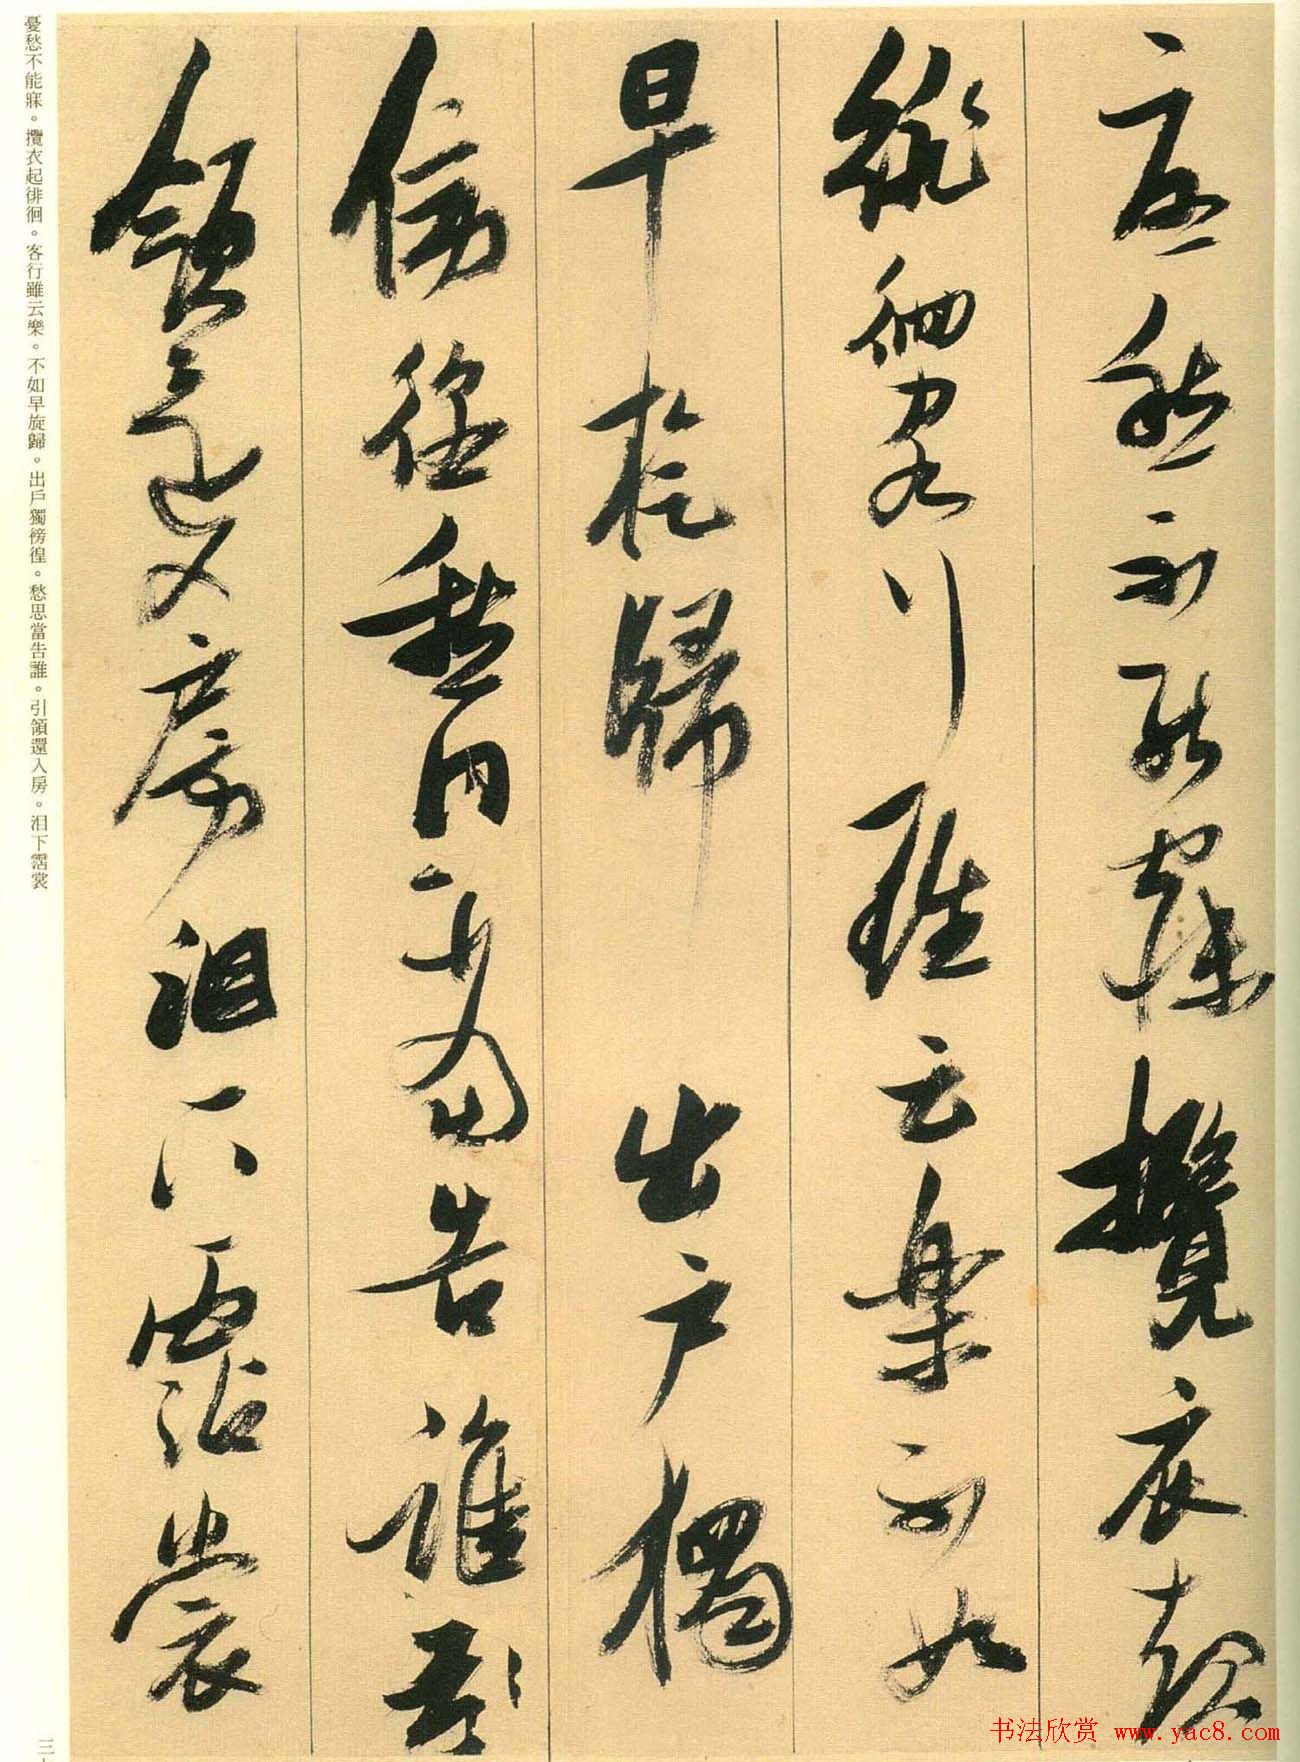 憂愁不能寐攬衣起
徘徊客行雖云樂不如
早旋歸 出戶獨
傍徨愁思當告誰引
領還入房泪下霑裳
憂愁不能寐。攬衣起徘徊。客行雖云樂。不如早旋歸。出戶獨徬徨。愁思當告誰。引領還入房。泪下霑裳
书法欣赏 www.yac8.com